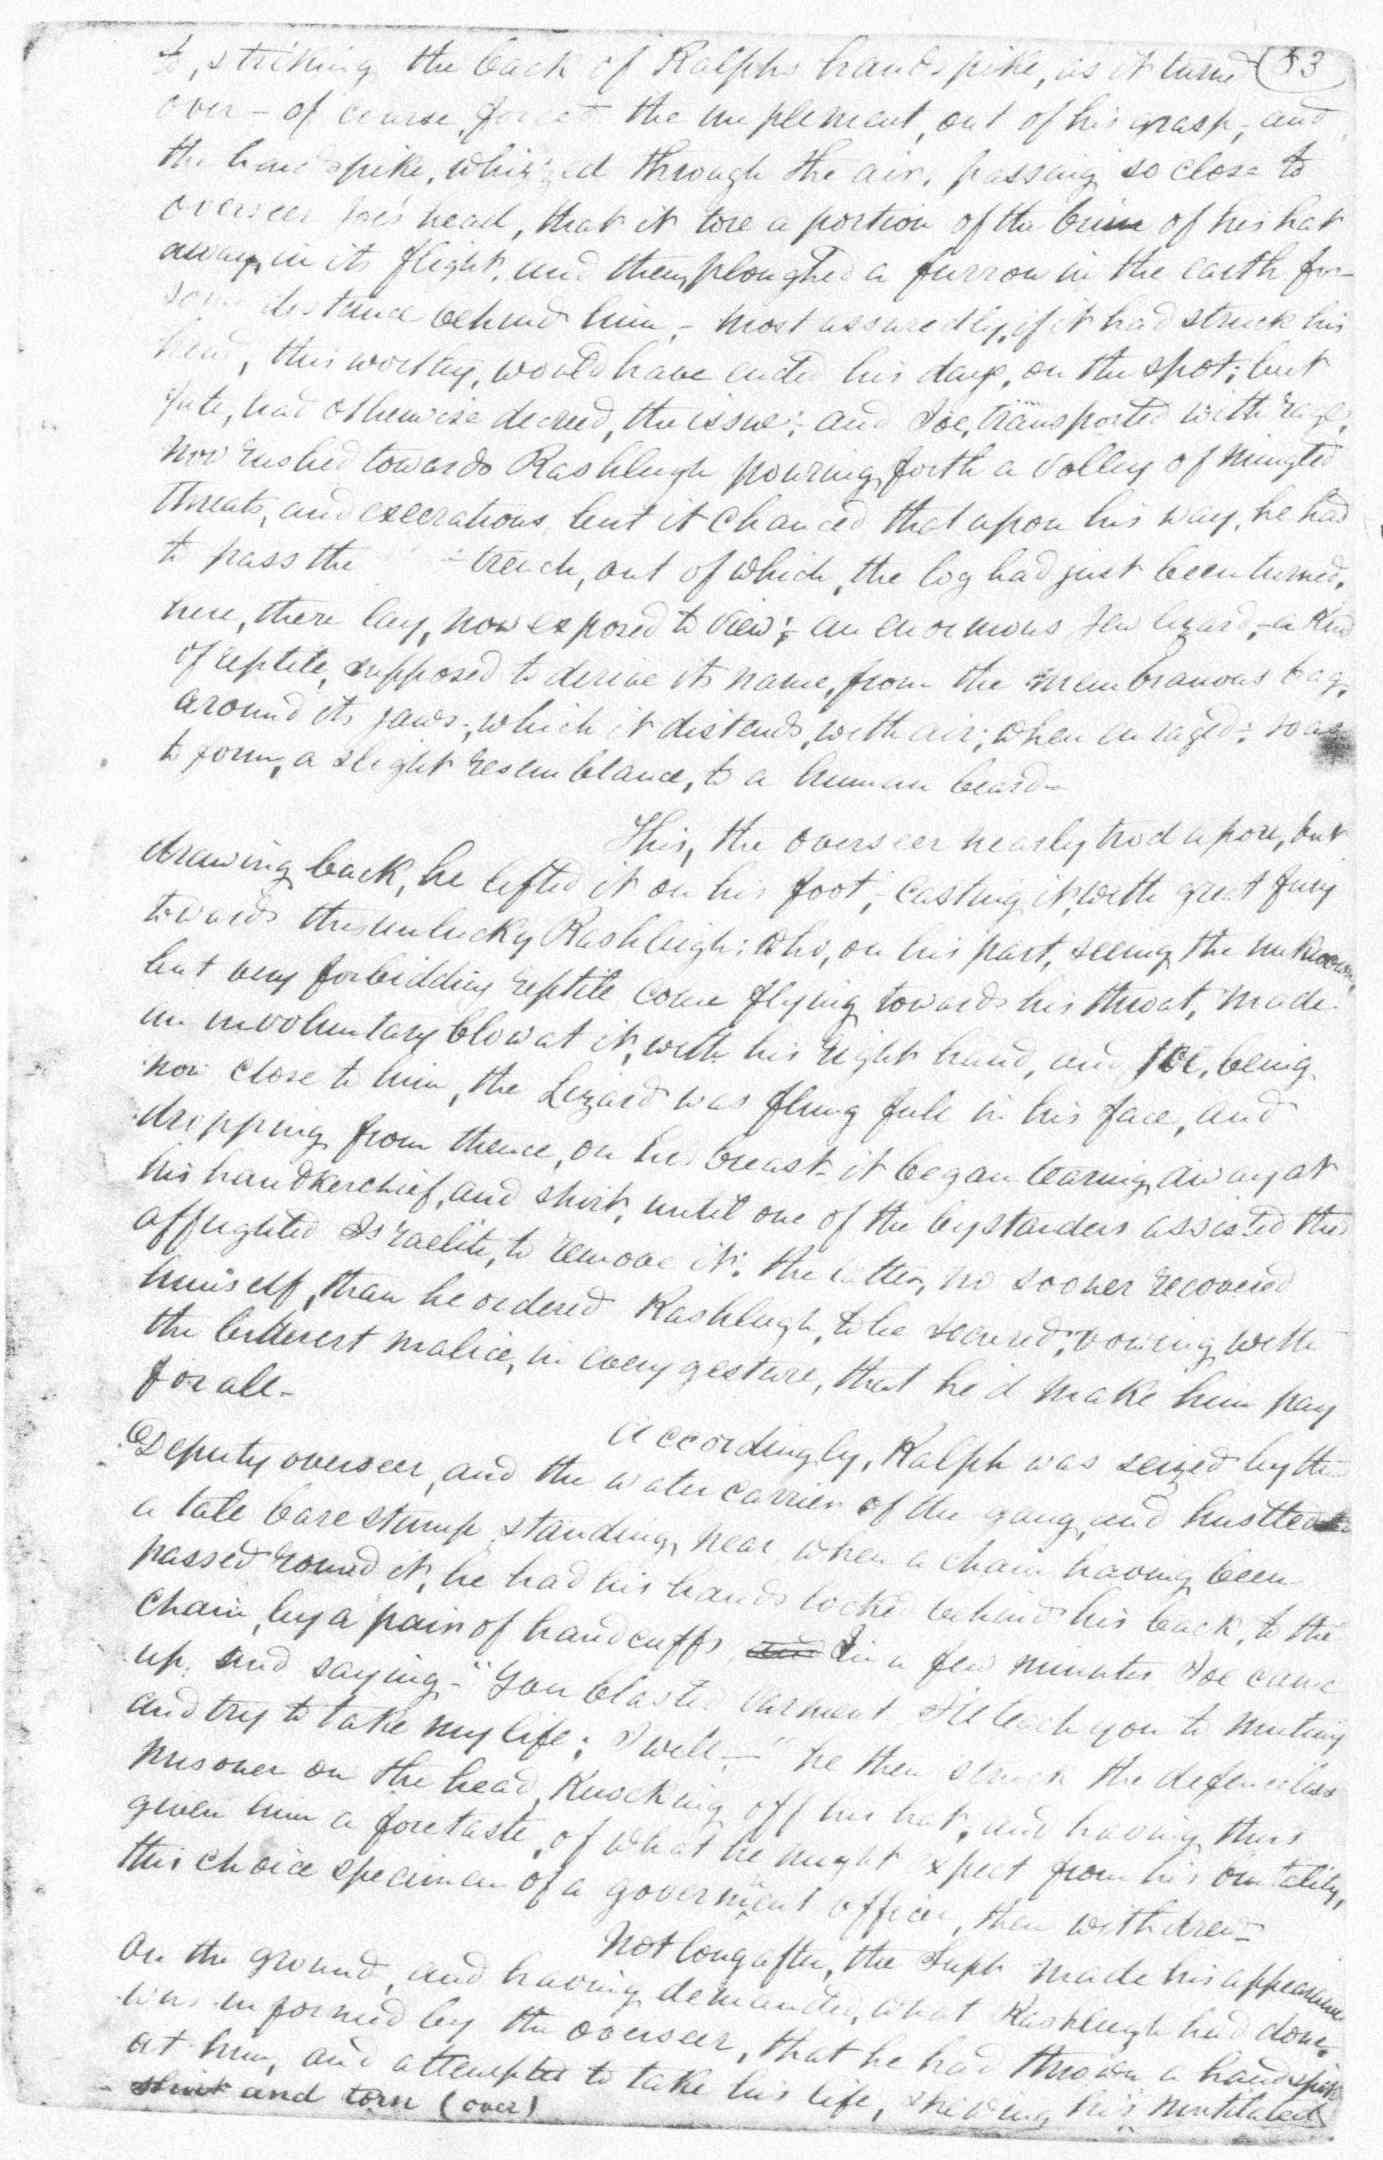 it, striking the back of Ralphs handspike, as it turned 83
over - of course, forced the implement, out of his grasp, and
the handspike, whizzed through the air, passing so close to
overseer Joe's head, that it tore a portion of the brim of his hat
away, in its flight, and then, ploughed a furrow in the earth for
some distance behind him, - most assuredly, if it had struck his
head, this worthy, would have ended his days, on the spot; but
fate, had otherwise decreed, the issue; and Joe, transported with rage,
now rushed towards Rashleigh pouring, forth a volley of mingled
threats, and execrations, but it chanced that upon his way, he had
to pass the - trench, out of which, the log had just been turned,
here, there lay, now exposed to view; - an enormous Jew lizard, - a kind
of reptile, supposed to derive its name, from the membranous bag,
around its jaws; which it distends, with air; when enraged; so as
to form, a slight resemblance, to a human beard -
This, the overseer nearly trod upon, but
drawing back, he lifted it on his foot; casting it, with great fury
towards the unlucky Rashleigh; who, on his part, seeing the unknown,
but very forbidding reptile come flying towards his throat, made
an involuntary blow at it, with his right hand, and Joe, being
now close to him, the Lizard was flung full in his face, and
dropping from thence, on his breast - it began tearing, away at
his handkerchief, and shirt, until one of the bystanders assisted the
affrighted Israelite, to remove it; the latter, no sooner recovered
himself, than he ordered Rashleigh, to be secured; vowing with
the bitterest malice, in every gesture, that he'd make him pay
for all -
Accordingly, Ralph was seized by the
Deputy overseer, and the water carrier of the gang, and hustled to
a tall bare stump, standing, near when a chain having been
passed round it, he had his hands locked behind his back, to the
chain, by a pair of handcuffs, and in a few minutes Joe came
up, and saying - "You blasted varment I'll teach you to mutiny
and try to take my life; I will -" he then struck the defenceless
prisoner on the head, knocking off his hat, and having thus
given him a foretaste, of what he might expect from his brutality,
this choice specimen of a government officer, then withdrew -
Not long after, the Supt made his appearance
on the ground, and having, demanded, what Rashleigh had done,
was informed by the overseer, that he had thrown a handspike
at him, and attempted to take his life, shewing, his mutilated
shirt and torn (over)